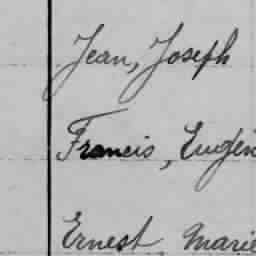 Jean, Joseph
Francis, Eugèn
Ernest, Marie